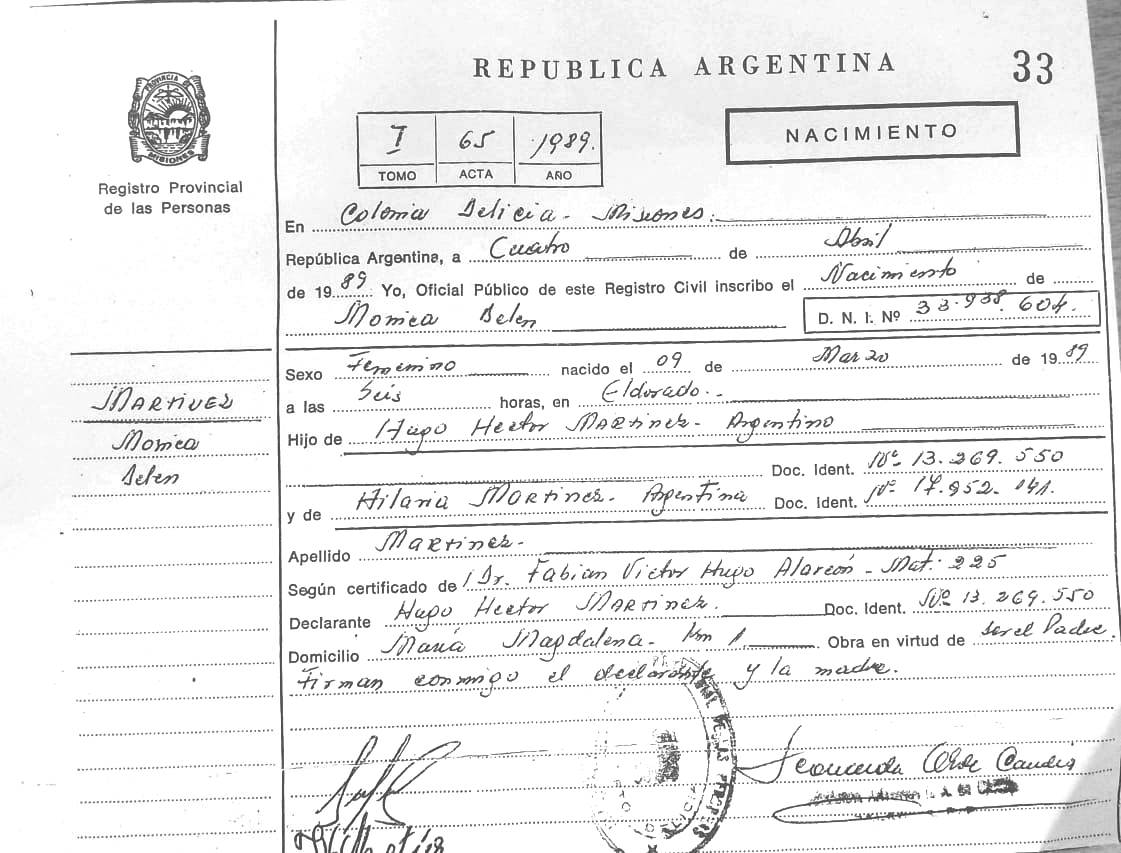 REPUBLICA ARGENTINA
33
PROVINCIA DE
MISIONES
Registro Provincial
de las Personas
I 65 1989.
TOMO ACTA AÑO
NACIMIENTO
En Colonia Delicia - Misiones.
República Argentina, a Cuatro de Abril
de 1989 Yo, Oficial Público de este Registro Civil inscribo el Nacimiento de
Monica Belen D. N. I. Nº 33.938.604.
Sexo Femenino nacido el 09 de Marzo de 1989
a las Seis horas, en Eldorado.-
Hijo de Hugo Hector MARTINEZ - Argentino
Doc. Ident. Nº 13.269.550
y de Hilaria MARTINEZ - Argentina Doc. Ident. Nº 17.952.041.
Apellido MARTINEZ -
Según certificado de Dr. Fabian Victor Hugo Alarcón - Mat: 225
Declarante Hugo Hector MARTINEZ. Doc. Ident. Nº 13.269.550
Domicilio María Magdalena - Km 1, Obra en virtud de ser el Padre.
Firman conmigo el declarante y la madre.
MARTINEZ
Monica
Belen
DE LAS PERSONAS